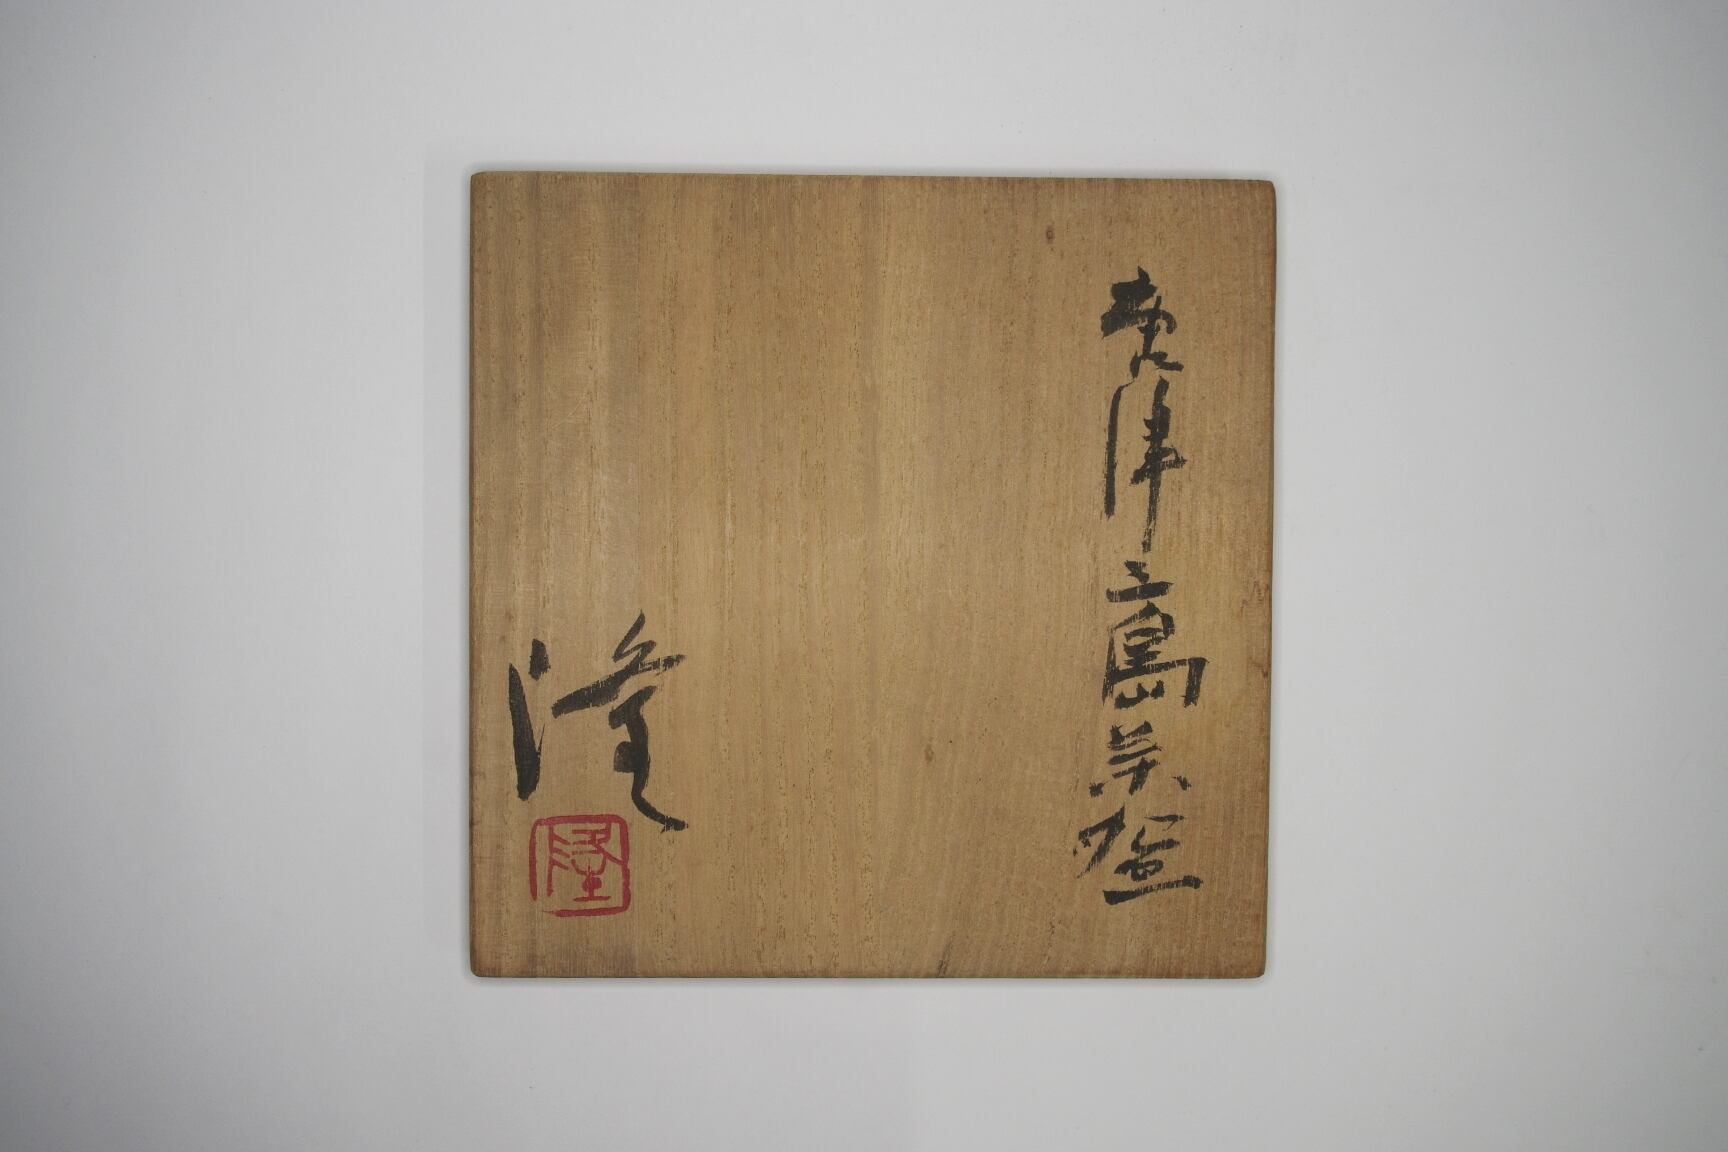 唐津高茶盌
隆
隆